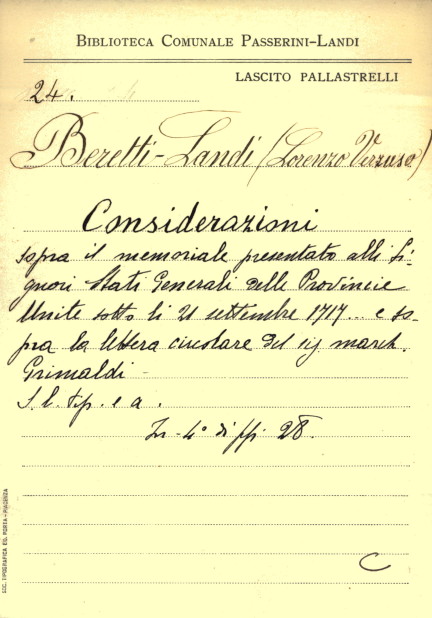 BIBLIOTECA COMUNALE PASSERINI-LANDI
LASCITO PALLASTRELLI
24.
Beretti-Landi (Lorenzo Verzuso)
Considerazioni
sopra il memoriale presentato alli Si-
gnori Stati Generali delle Provincie
Unite sotto li 21 settembre 1717... e so-
pra la lettera circolare del sig. march.
Grimaldi -
S. l. tip. e a.
In-4° di pp. 28.
C
SOC. TIPOGRAFICA ED. PORTA-PIACENZA